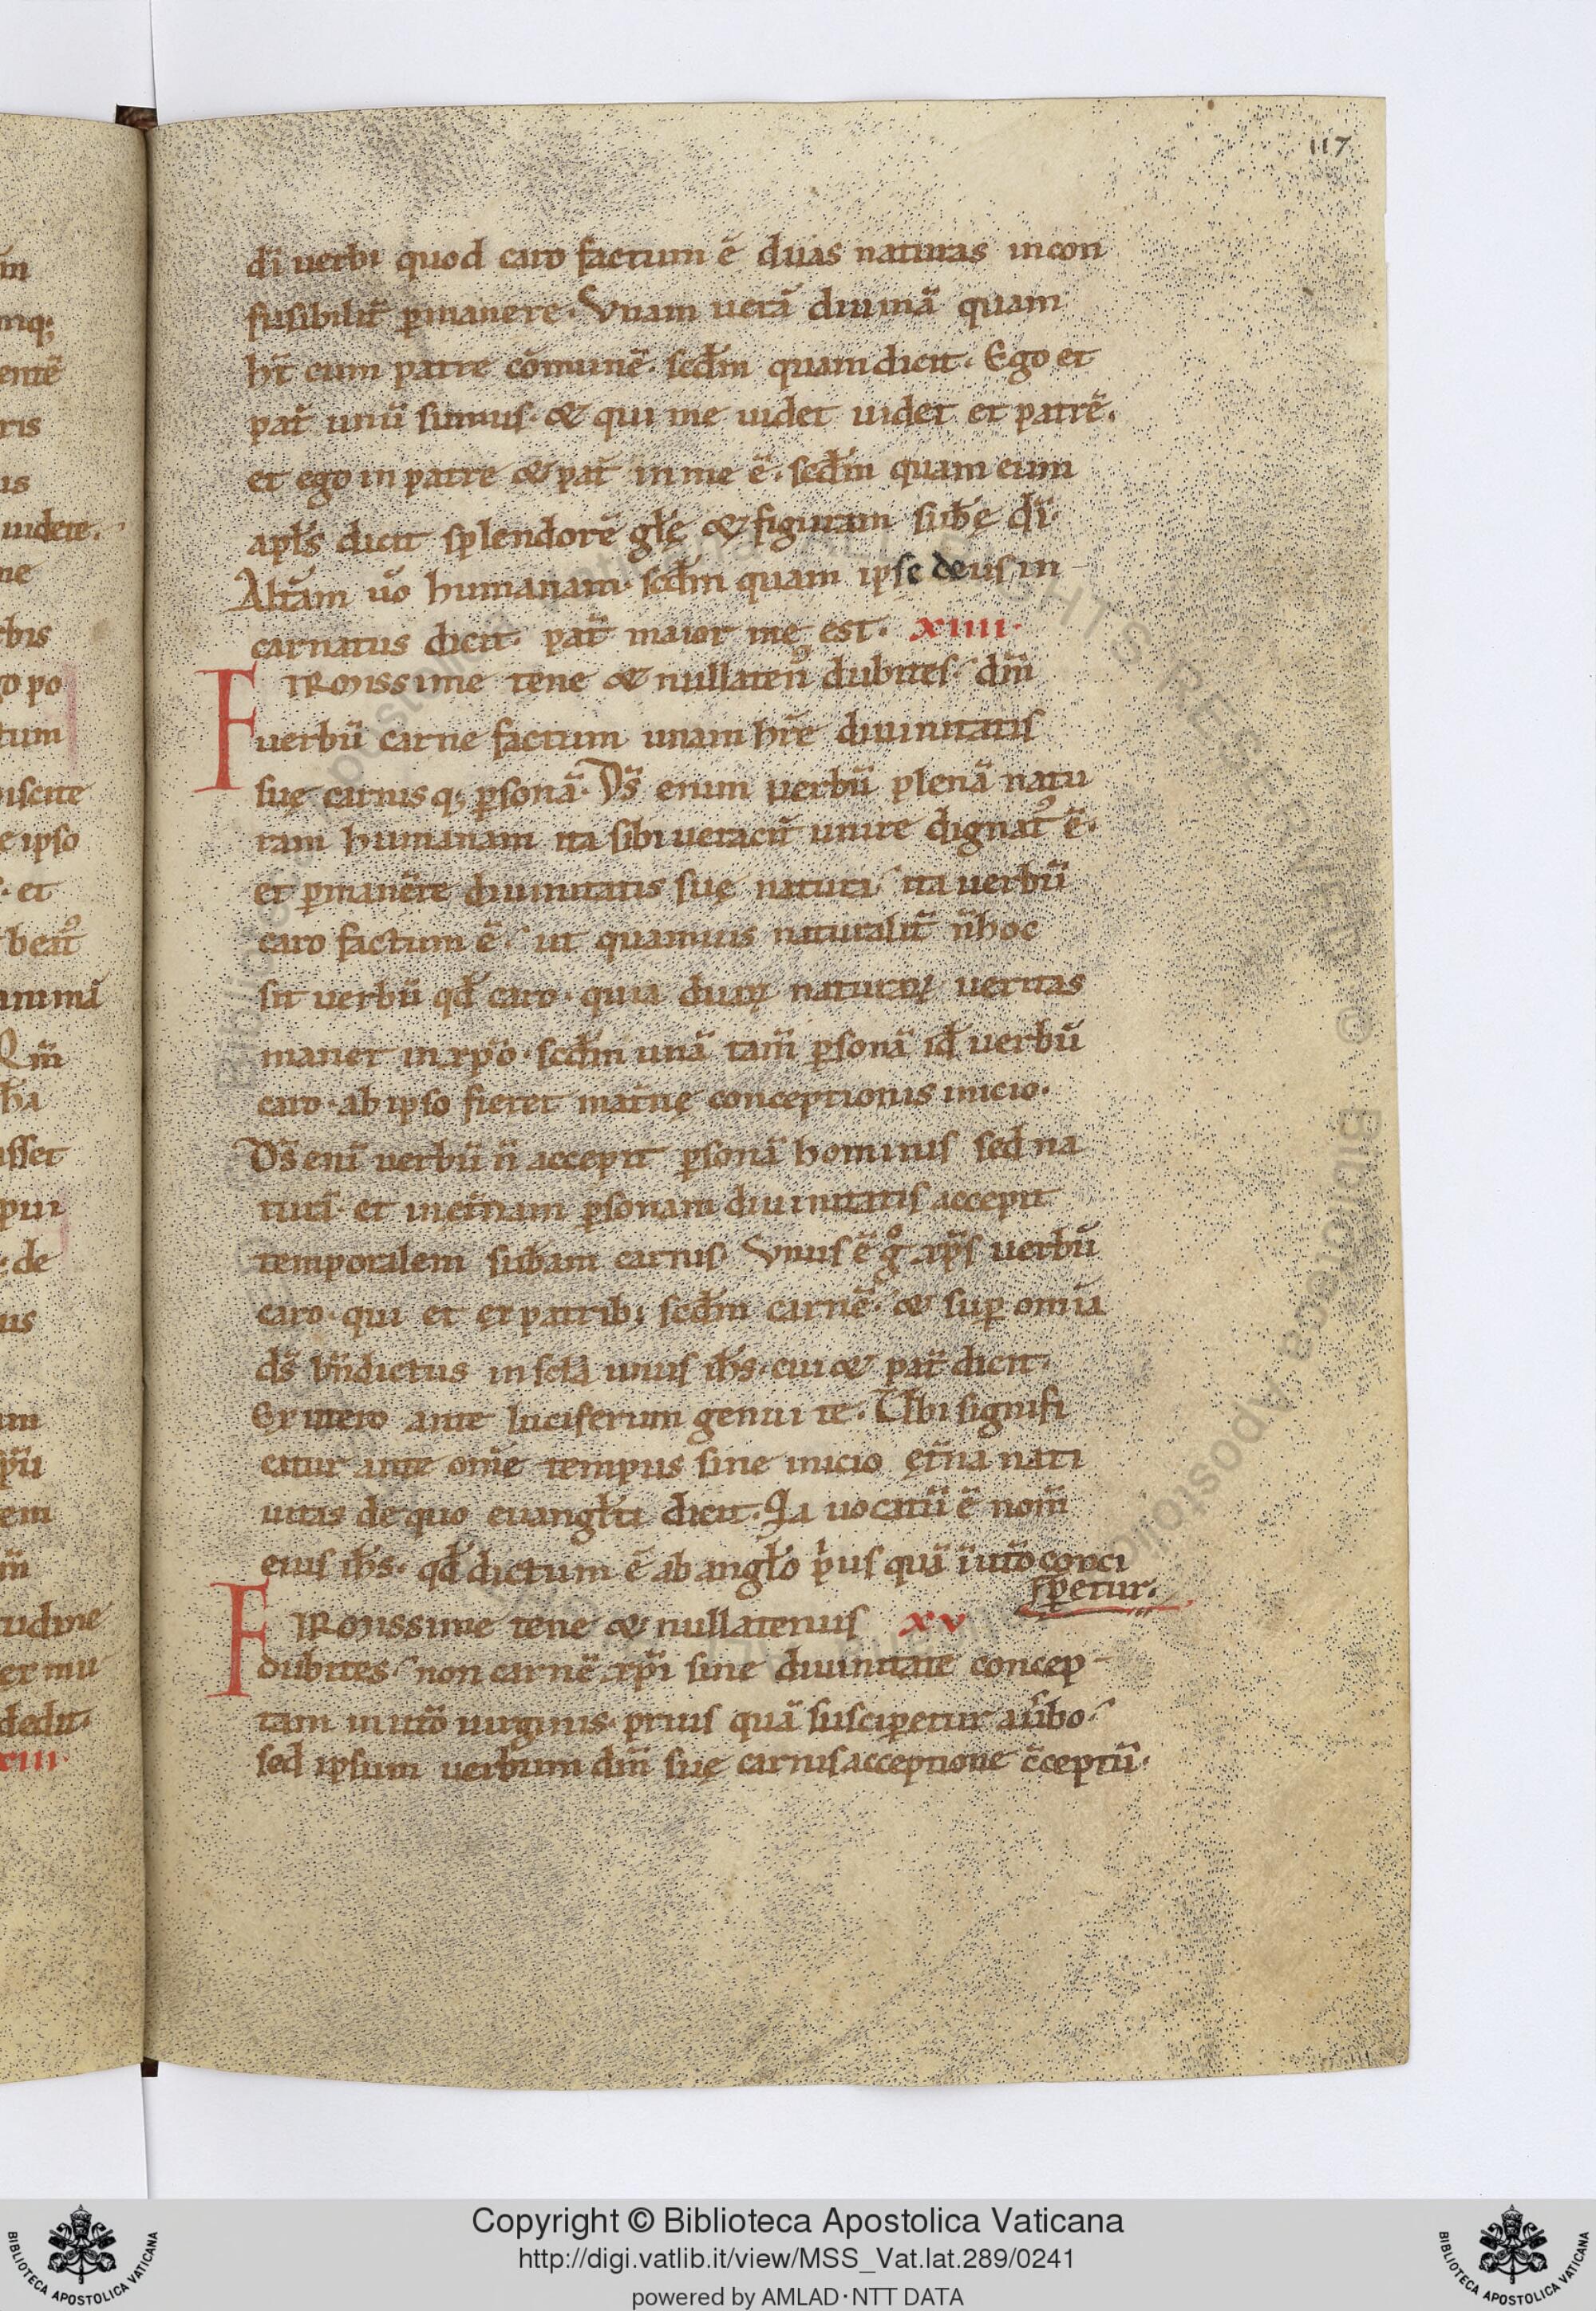 117
dī uerbi quod caro factum ē duas naturas incon
fusibilit̄ ꝑmanere. Vnam uerā diuinā quam
hт̄ cum patre cōmunē. scdm̄ quam dicit. Ego et
pat̄ unū sumus. & qui me uidet uidet et patrē.
et ego in patre & pat̄ in me ē. scdm̄ quam eum
apl̄s dicit splendorē gl̄ę & figuram sub̄ę dī.
Altām uō humanam. scdm̄ quam ipse deus in
carnatus dicit. pat̄ maior me est. XIIII.
FIRMISSIME tene & nullaten᷒ dubites dm̄
uerbū carnē factum unam hr̄e diuinitatis
suę carnisq; ꝑsonā. Ds̄ enim uerbū plenā natu
ram humanam ita sibi ueracit̄ unire dignat᷒ ē.
et ꝑmanēte diuinitatis suę naturā ita uerbū
caro factum ē. ut quamuis naturalit̄ n̄ hoc
sit uerbū qd̄ caro. quia duaꝝ naturaꝝ ueritas
manet in xp̄o. scdm̄ unā tam̄ ꝑsonā id̄ uerbū
caro. ab ipso fieret mat̄nę conceptionis inicio.
Ds̄ enī uerbū n̄ accepit ꝑsonā hominis sed na
turā. et in et̄nam ꝑsonam diuinitatis accepit
temporalem sub̄am carnis. Vnus ē gͦ xp̄s uerbū
caro. qui et ex patrib; scdm̄ carnē. & suꝑ omīa
ds̄ bn̄dictus in scl̄a unus ih̄s. cui & pat̄ dicit.
Ex utero ante luciferum genui te. Vbi signifi
catur ante om̄e tempus sine inicio ęt̄na nati
uitas de quo euangl̄ta dicit. Ia uocatū ē nom̄
eius ih̄s. qd̄ dictum ē ab angl̄o pͥus quā ī utō conci
ꝑetur.
FIRMISSIME tene & nullatenus XV
dubites. non carnē xp̄i sine diuinitate concep-
tam in utō uirginis. prius quā susciꝑetur a ūbo.
sed ipsum uerbum dm̄ suę carnis acceptione c̄ceptū.
rbis
uidere.
iscite
e ipso
. et
: de
em
udine
dedit.
XIII.
Copyright © Biblioteca Apostolica Vaticana
http://digi.vatlib.it/view/MSS_Vat.lat.289/0241
powered by AMLAD·NTT DATA
BIBLIOTECA APOSTOLICA VATICANA
BIBLIOTECA APOSTOLICA VATICANA